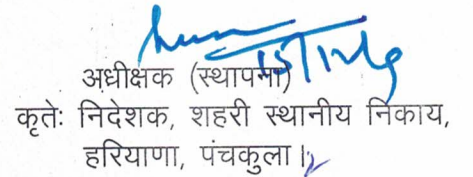 अधीक्षक (स्थापना)
कृतेः निदेशक, शहरी स्थानीय निकाय,
हरियाणा, पंचकुला।